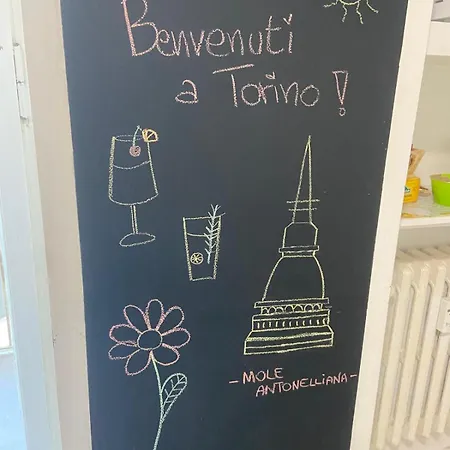 Benvenuti
a Torino!
- MOLE
ANTONELLIANA -